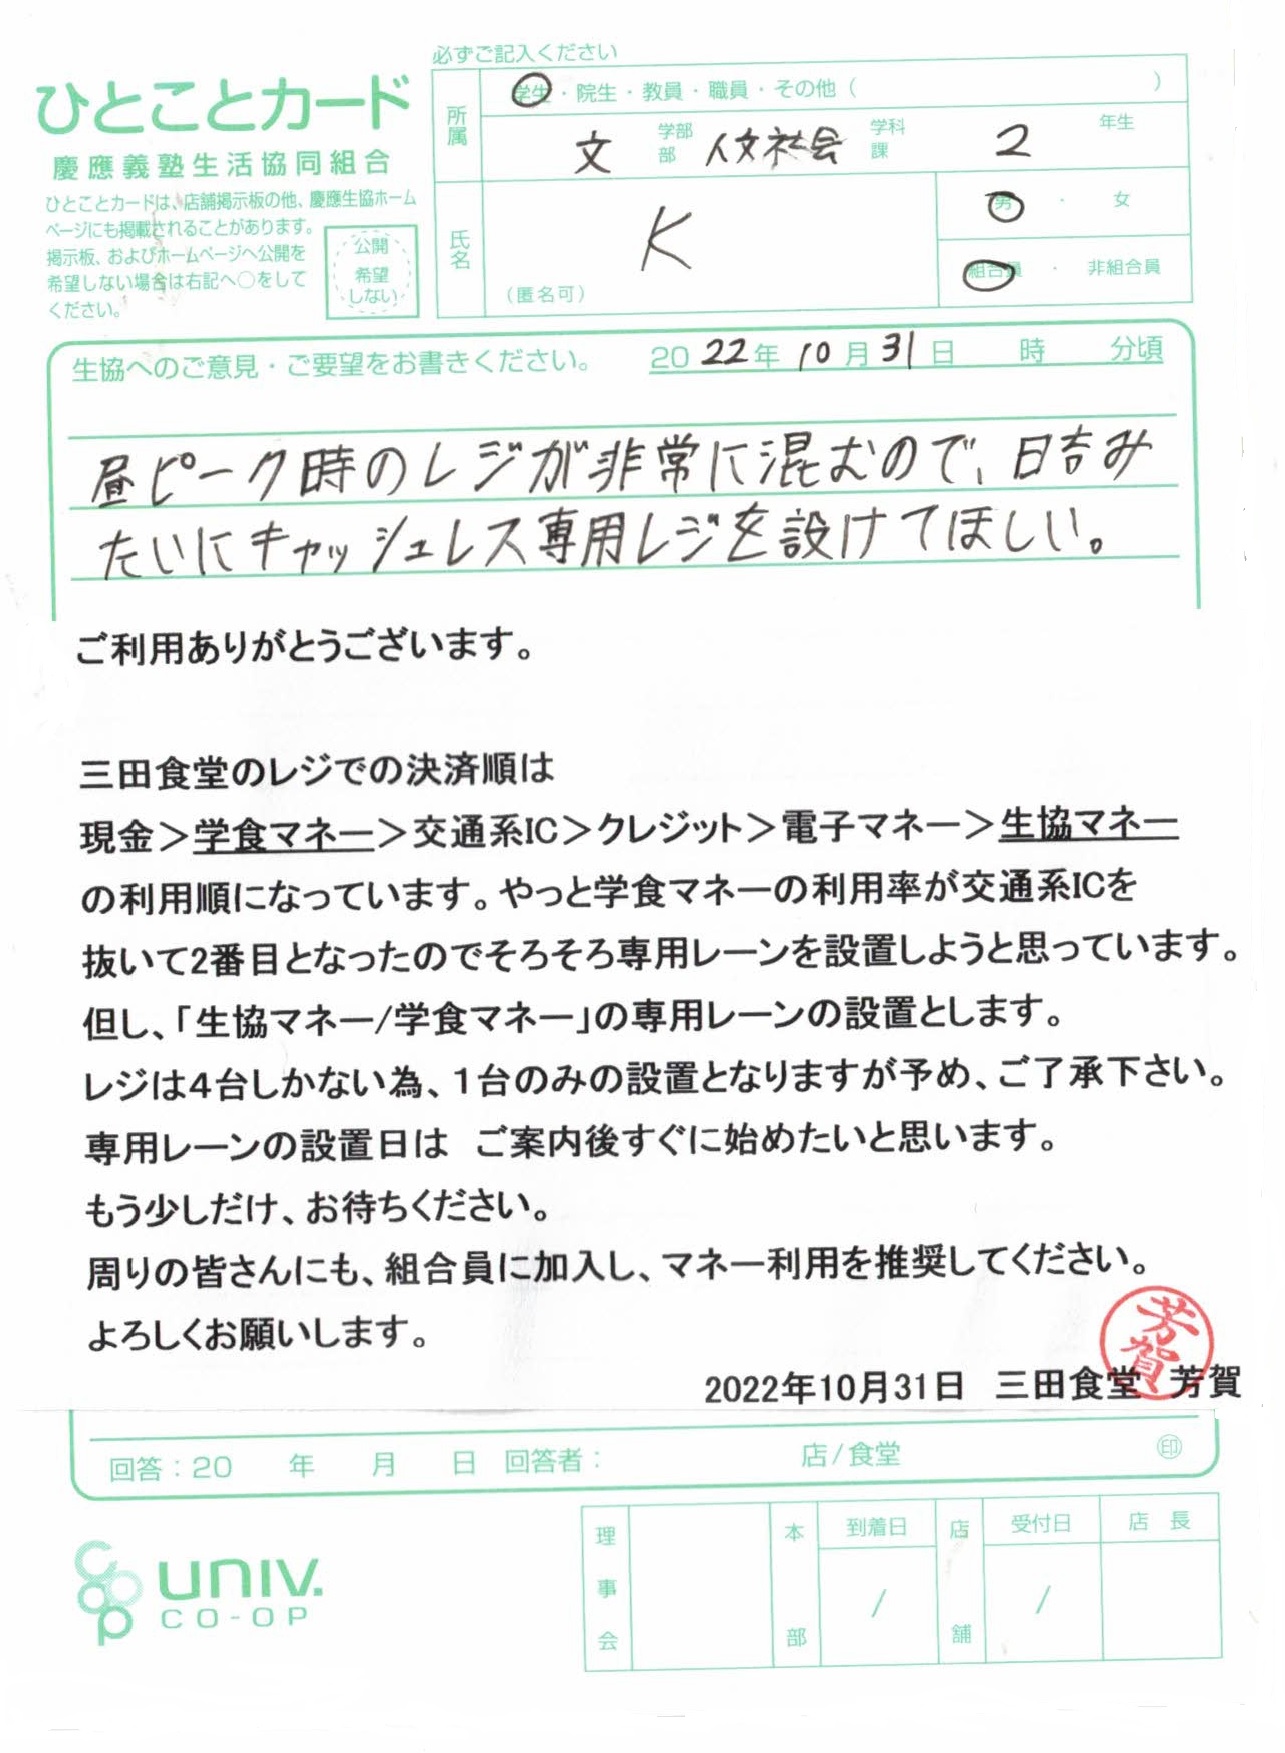 必ずご記入ください
ひとことカード
慶應義塾生活協同組合
ひとことカードは、店舗掲示板の他、慶應生協ホーム
ページにも掲載されることがあります。
掲示板、およびホームページへ公開を
希望しない場合は右記へ○をして
ください。
公開
希望
しない
所属
学生・院生・教員・職員・その他( )
文 学部 部 人文社会 学科 課 2 年生
氏名
K
(匿名可)
男 ・ 女
組合員 ・ 非組合員
生協へのご意見・ご要望をお書きください。 2022年10月31日 時 分頃
昼ピーク時のレジが非常に混むので、日吉み
たいにキャッシュレス専用レジを設けてほしい。
ご利用ありがとうございます。
三田食堂のレジでの決済順は
現金>学食マネー>交通系IC>クレジット>電子マネー>生協マネー
の利用順になっています。やっと学食マネーの利用率が交通系ICを
抜いて2番目となったのでそろそろ専用レーンを設置しようと思っています。
但し、「生協マネー/学食マネー」の専用レーンの設置とします。
レジは4台しかない為、1台のみの設置となりますが予め、ご了承下さい。
専用レーンの設置日は ご案内後すぐに始めたいと思います。
もう少しだけ、お待ちください。
周りの皆さんにも、組合員に加入し、マネー利用を推奨してください。
よろしくお願いします。
芳賀
2022年10月31日 三田食堂 芳賀
回答:20 年 月 日 回答者: 店/食堂 ㊞
coop univ.
CO-OP
理事会
本部
到着日
/
店舗
受付日
/
店長